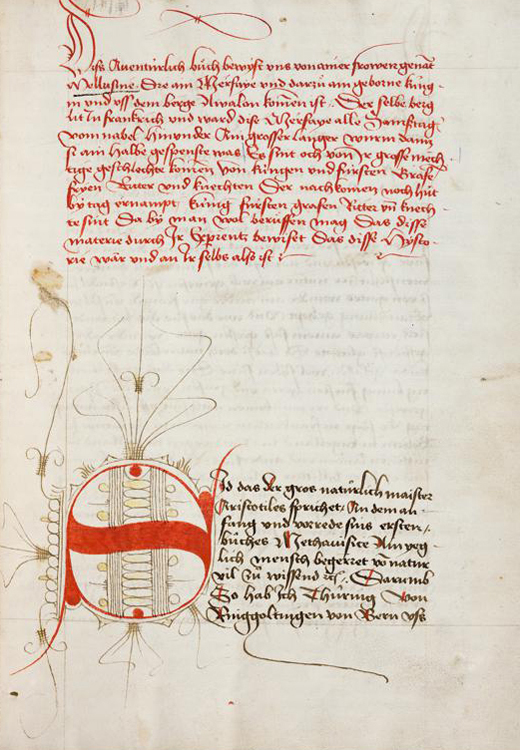 Diss Auentúrlich bůch bewyst vns von ainer frowen genāt
Mellusine. Die ain Merfaye vnd darzů ain geborne kúng-
in vnd vss dem berge Awalon komen ist. Der selbe berg
lit In franckrich vnd ward dise Merfaye alle Samstag
vom nabel hinunder Ain grosser langer wurm dann
si ain halbe gespenste was Es sint och von Ir grosse mech-
tige geschlechte komen von kúngen vnd fúrsten Gräfe
fryen Ritter vnd knechten Der nachkomen noch hút
by tag ernampt kúng fúrsten grafen Ritter vn knech-
te sint Da by man wol brüffen mag Das dise
materie durch Ir Exprentz bewiset Das disse Hysto-
rie wär vnd an Ir selbs also ist
Sid das der gros natúrlich maister
Aristotiles sprichet An dem an-
fang vnd vorrede sins ersten
bůches Methauisice Ain yeg-
lich mensch begerret vō natur
vil zů wissend etc. Darumb
So hab Ich Thúring von
Ringgoltingen von Bern vss